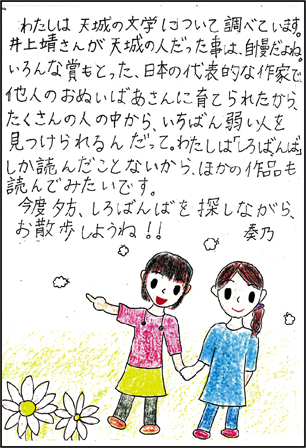 わたしは天城の文学について調べています。
井上靖さんが天城の人だった事は、自慢だよね。
いろんな賞もとった、日本の代表的な作家で、
他人のおぬいばあさんに育てられたから、
たくさんの人の中から、いちばん弱い人を
見つけられるんだって。わたしは「しろばんば」
しか読んだことないから、ほかの作品も
読んでみたいです。
今度夕方、しろばんばを探しながら、
お散歩しようね!!
奏乃